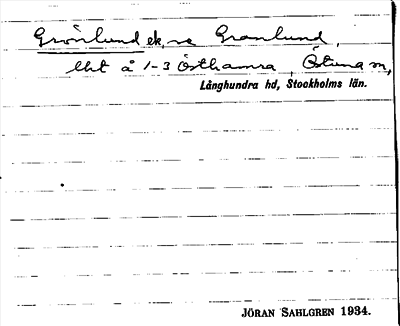 Grönlund ek, se Granlund,
lht å 1-3 Östhamra, Östuna sn,
Långhundra hd, Stockholms län.
JÖRAN SAHLGREN 1934.